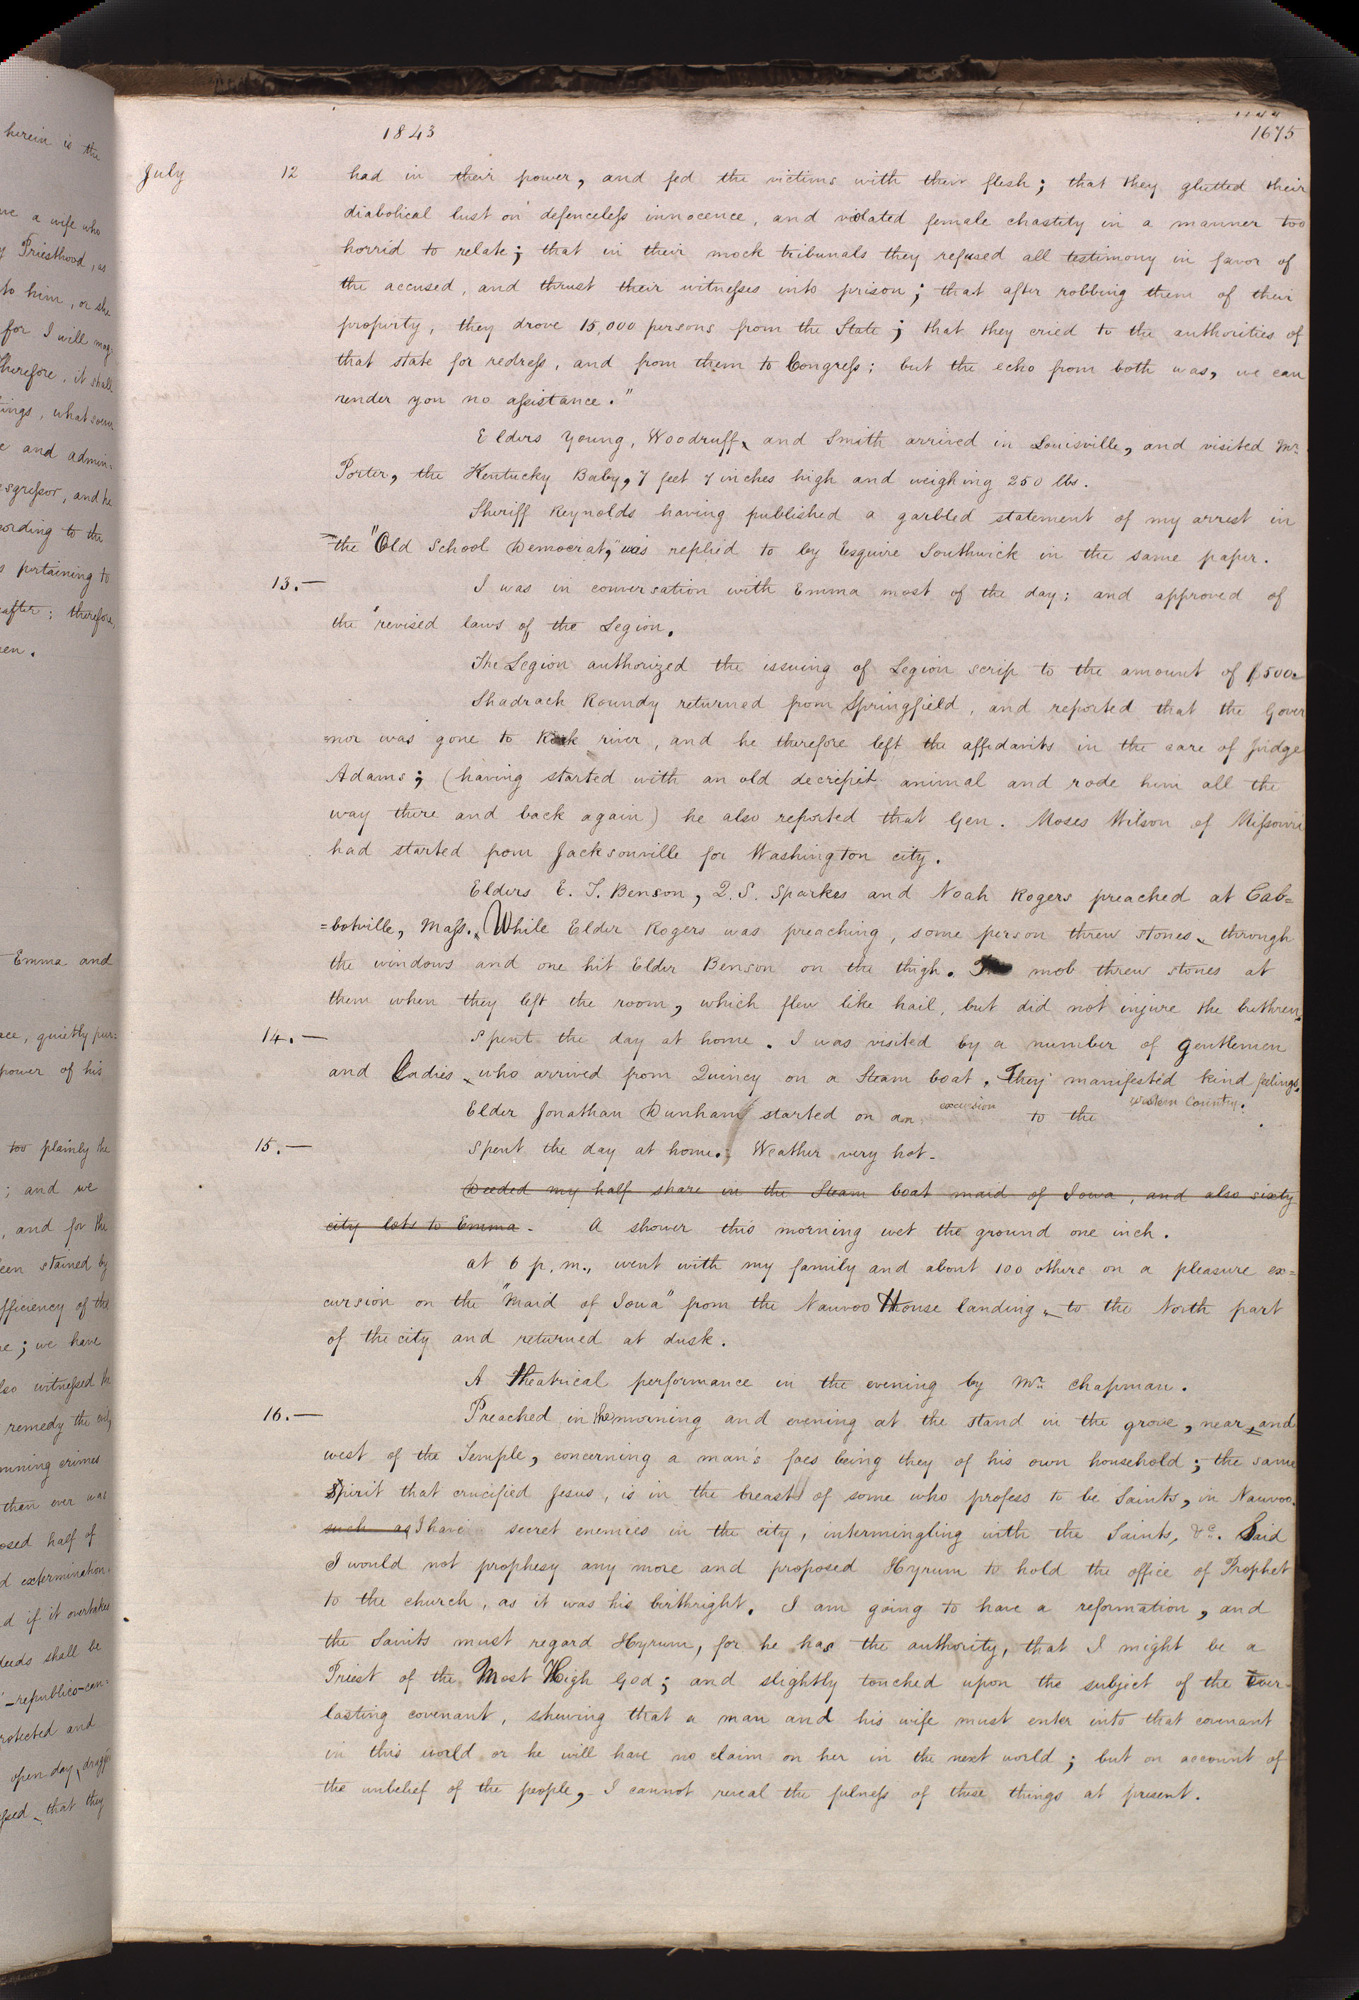 herein is the
ve a wife who
y Priesthood, as
to him, or she
for I will mag=
therefore, it shall
ings, whatsoever
e and admin=
esgressor, and he
cording to the
s pertaining to
after; therefore,
en.
Emma and
ace, quietly pur=
power of his
too plainly the
; and we
, and for the
een stained by
fficiency of the
e; we have
lso witnessed the
remedy the evil,
mning crimes
than ever was
osed half of
d extermination,
d if it overtakes
deeds shall be
-republico-can-
rotected and
open day, dragg
essed, that they
1843
1675
July 12 had in their power, and fed the victims with their flesh; that they glutted their
diabolical lust on defenceless innocence, and violated female chastity in a manner too
horrid to relate; that in their mock tribunals they refused all testimony in favor of
the accused, and thrust their witnesses into prison; that after robbing them of their
property, they drove 15,000 persons from the State; that they cried to the authorities of
that state for redress, and from them to Congress; but the echo from both was, we can
render you no assistance."
Elders Young, Woodruff, and Smith arrived in Louisville, and visited Mr.
Porter, the Kentucky Baby, 7 feet 7 inches high and weighing 250 lbs.
Sheriff Reynolds having published a garbled statement of my arrest in
the "Old School Democrat," was replied to by Esquire Southwick in the same paper.
13.— I was in conversation with Emma most of the day; and approved of
the revised laws of the Legion.
The Legion authorized the issuing of Legion scrip to the amount of $500
Shadrach Roundy returned from Springfield, and reported that the Gover
=nor was gone to Rock river, and he therefore left the affidavits in the care of Judge
Adams; (having started with an old decripit animal and rode him all the
way there and back again) he also reported that Gen. Moses Wilson of Missouri
had started from Jacksonville for Washington city.
Elders E. T. Benson, Q. S. Sparkes and Noah Rogers preached at Cab=
=botville, Mass. While Elder Rogers was preaching, some person threw stones, through
the windows and one hit Elder Benson on the thigh. The mob threw stones at
them when they left the room, which flew like hail, but did not injure the brethren.
14.— Spent the day at home. I was visited by a number of gentlemen
and Ladies, who arrived from Quincy on a Steam boat. They manifested kind feelings.
Elder Jonathan Dunham started on an excursion to the western Country.
15.— Spent the day at home. Weather very hot.
Deeded my half share in the Steam boat maid of Iowa, and also sixty
city lots to Emma. A shower this morning wet the ground one inch.
at 6 p.m., went with my family and about 100 others on a pleasure ex=
cursion on the "Maid of Iowa" from the Nauvoo House landing, to the North part
of the city and returned at dusk.
A theatrical performance in the evening by Mr. Chapman.
16.— Preached in the morning and evening at the stand in the grove, near, and
west of the Temple, concerning a man's foes being they of his own household; the same
Spirit that crucified Jesus, is in the breast of some who profess to be Saints, in Nauvoo.
such as I have secret enemies in the city, intermingling with the Saints, &c. Said
I would not prophesy any more and proposed Hyrum to hold the office of Prophet
to the church, as it was his birthright. I am going to have a reformation, and
the Saints must regard Hyrum, for he has the authority, that I might be a
Priest of the Most High God; and slightly touched upon the subject of the Ever-
lasting covenant, shewing that a man and his wife must enter into that covenant
in this world or he will have no claim on her in the next world; but on account of
the unbelief of the people, I cannot reveal the fulness of these things at present.